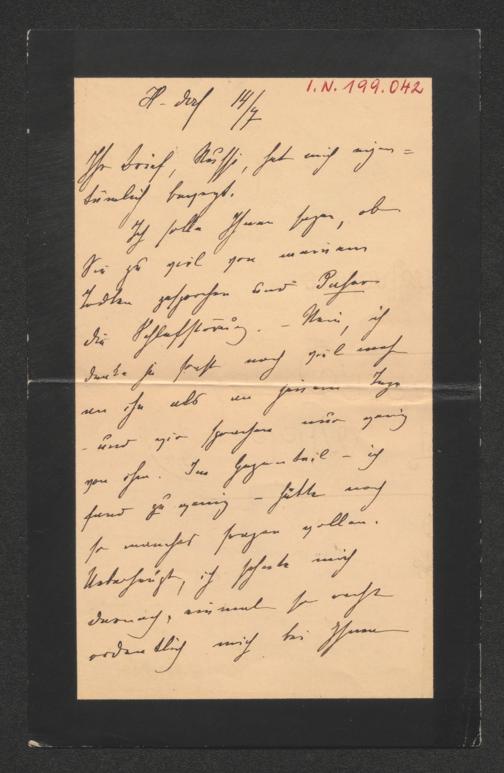 I.N. 199.042
H-dorf 14/7
Ihr Brief, , hat mich eigen=
tümlich bewegt.
Ich solle Ihnen sagen, ob
Sie zu viel von meinem
Todten gesprochen und
die Schlafstörung. – Nein, ich
denke ja sonst noch viel mehr
an ihn als an jenem Tage
– und wir sprachen nur wenig
von ihm. Im Gegenteil – ich
fand zu wenig – hätte noch
so manches fragen wollen.
Ueberhaupt, ich sehnte mich
darnach, einmal so recht
ordentlich mich bei Ihnen